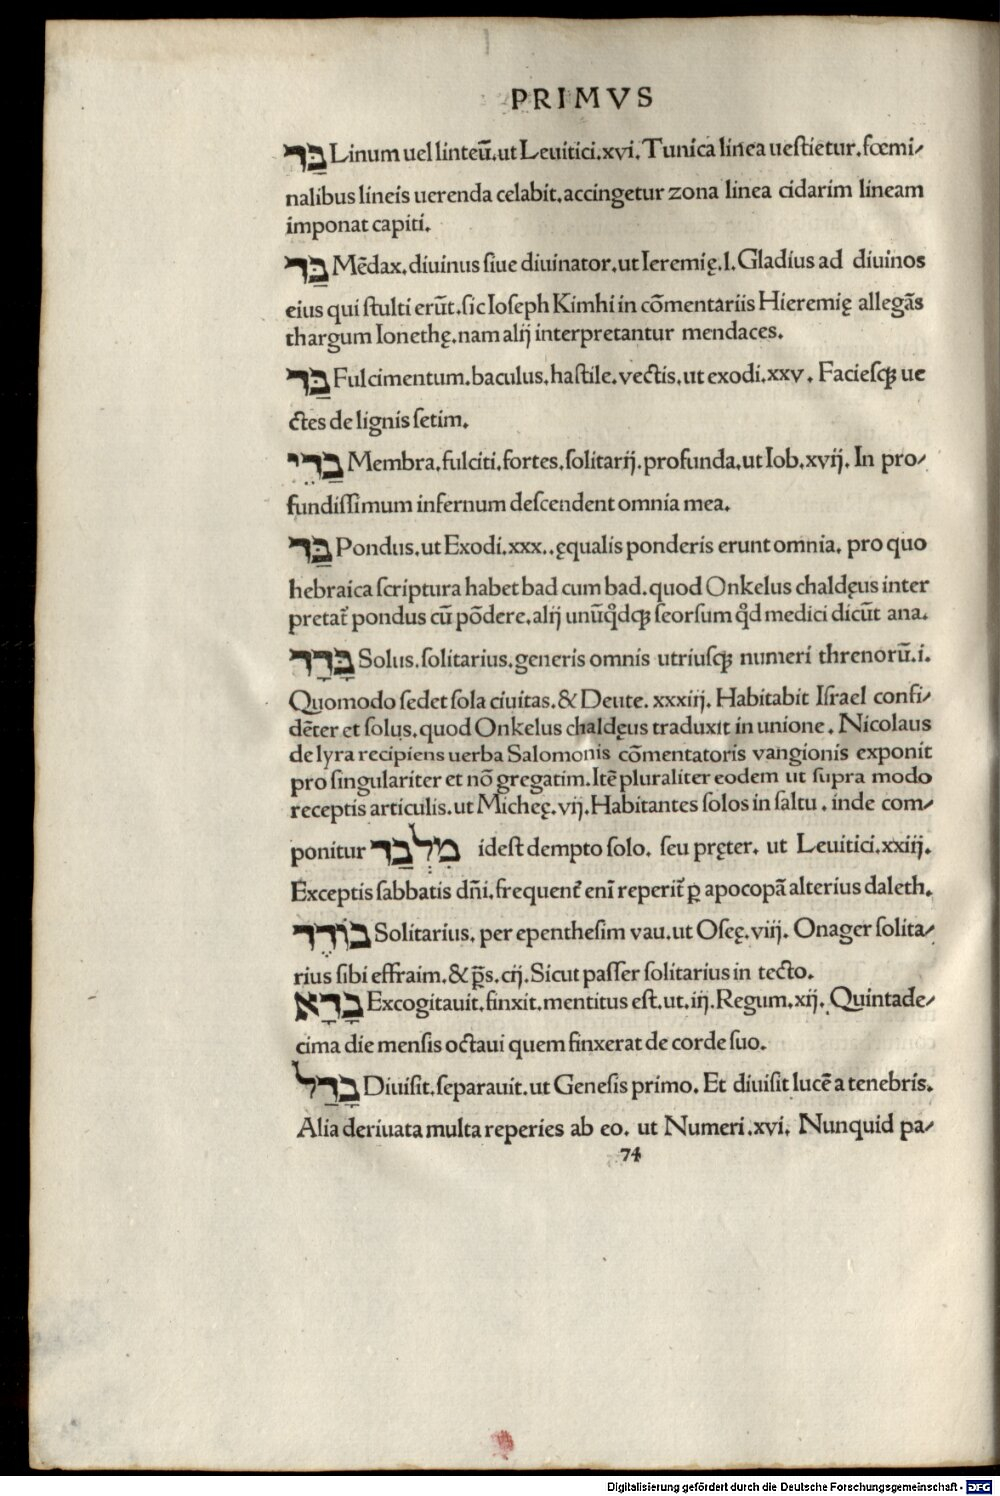 PRIMVS
בַּד Linum uel linteū.ut Leuitici.xvi. Tunica linea uestietur.fœmi⸗
nalibus lineis uerenda celabit.accingetur zona linea cidarim lineam
imponat capiti.
בַּד Mēdax.diuinus siue diuinator.ut Ieremię.l.Gladius ad diuinos
eius qui stulti erūt.sic Ioseph Kimhi in cōmentariis Hieremię allegās
thargum Ionethę.nam alij interpretantur mendaces.
בַּד Fulcimentum.baculus.hastile.vectis.ut exodi.xxv. Faciesqꝫ ue
ctes de lignis setim.
בַּדֵי Membra.fulciti.fortes.solitarij.profunda.ut Iob.xvij. In pro⸗
fundissimum infernum descendent omnia mea.
בַּד Pondus.ut Exodi.xxx..ęqualis ponderis erunt omnia. pro quo
hebraica scriptura habet bad cum bad.quod Onkelus chaldęus inter
pretat᷑ pondus cū põdere.alij unūqͥdqꝫ seorsum qͥd medici dicūt ana.
בָּדָד Solus.solitarius.generis omnis utriusqꝫ numeri threnorū.i.
Quomodo sedet sola ciuitas.& Deute. xxxiij. Habitabit Israel confi⸗
dēter et solus.quod Onkelus chaldęus traduxit in unione. Nicolaus
de lyra recipiens uerba Salomonis cōmentatoris vangionis exponit
pro singulariter et nō gregatim.Itē pluraliter eodem ut supra modo
receptis articulis.ut Micheę.vij.Habitantes solos in saltu. inde com⸗
ponitur מִלְּבַד idest dempto solo. seu pręter. ut Leuitici.xxiij.
Exceptis sabbatis dñi.frequent᷑ enī reperit᷑ ꝑ apocopā alterius daleth.
בּוֹדֵד Solitarius. per epenthesim vau.ut Oseę.viij. Onager solita⸗
rius sibi effraim.& p̄s.cij.Sicut passer solitarius in tecto.
בָּדָא Excogitauit.finxit.mentitus est.ut.iij.Regum.xij. Quintade⸗
cima die mensis octaui quem finxerat de corde suo.
בָּדַל Diuisit.separauit.ut Genesis primo. Et diuisit lucē a tenebris.
Alia deriuata multa reperies ab eo. ut Numeri.xvi. Nunquid pa⸗
74
Digitalisierung gefördert durch die Deutsche Forschungsgemeinschaft - DFG